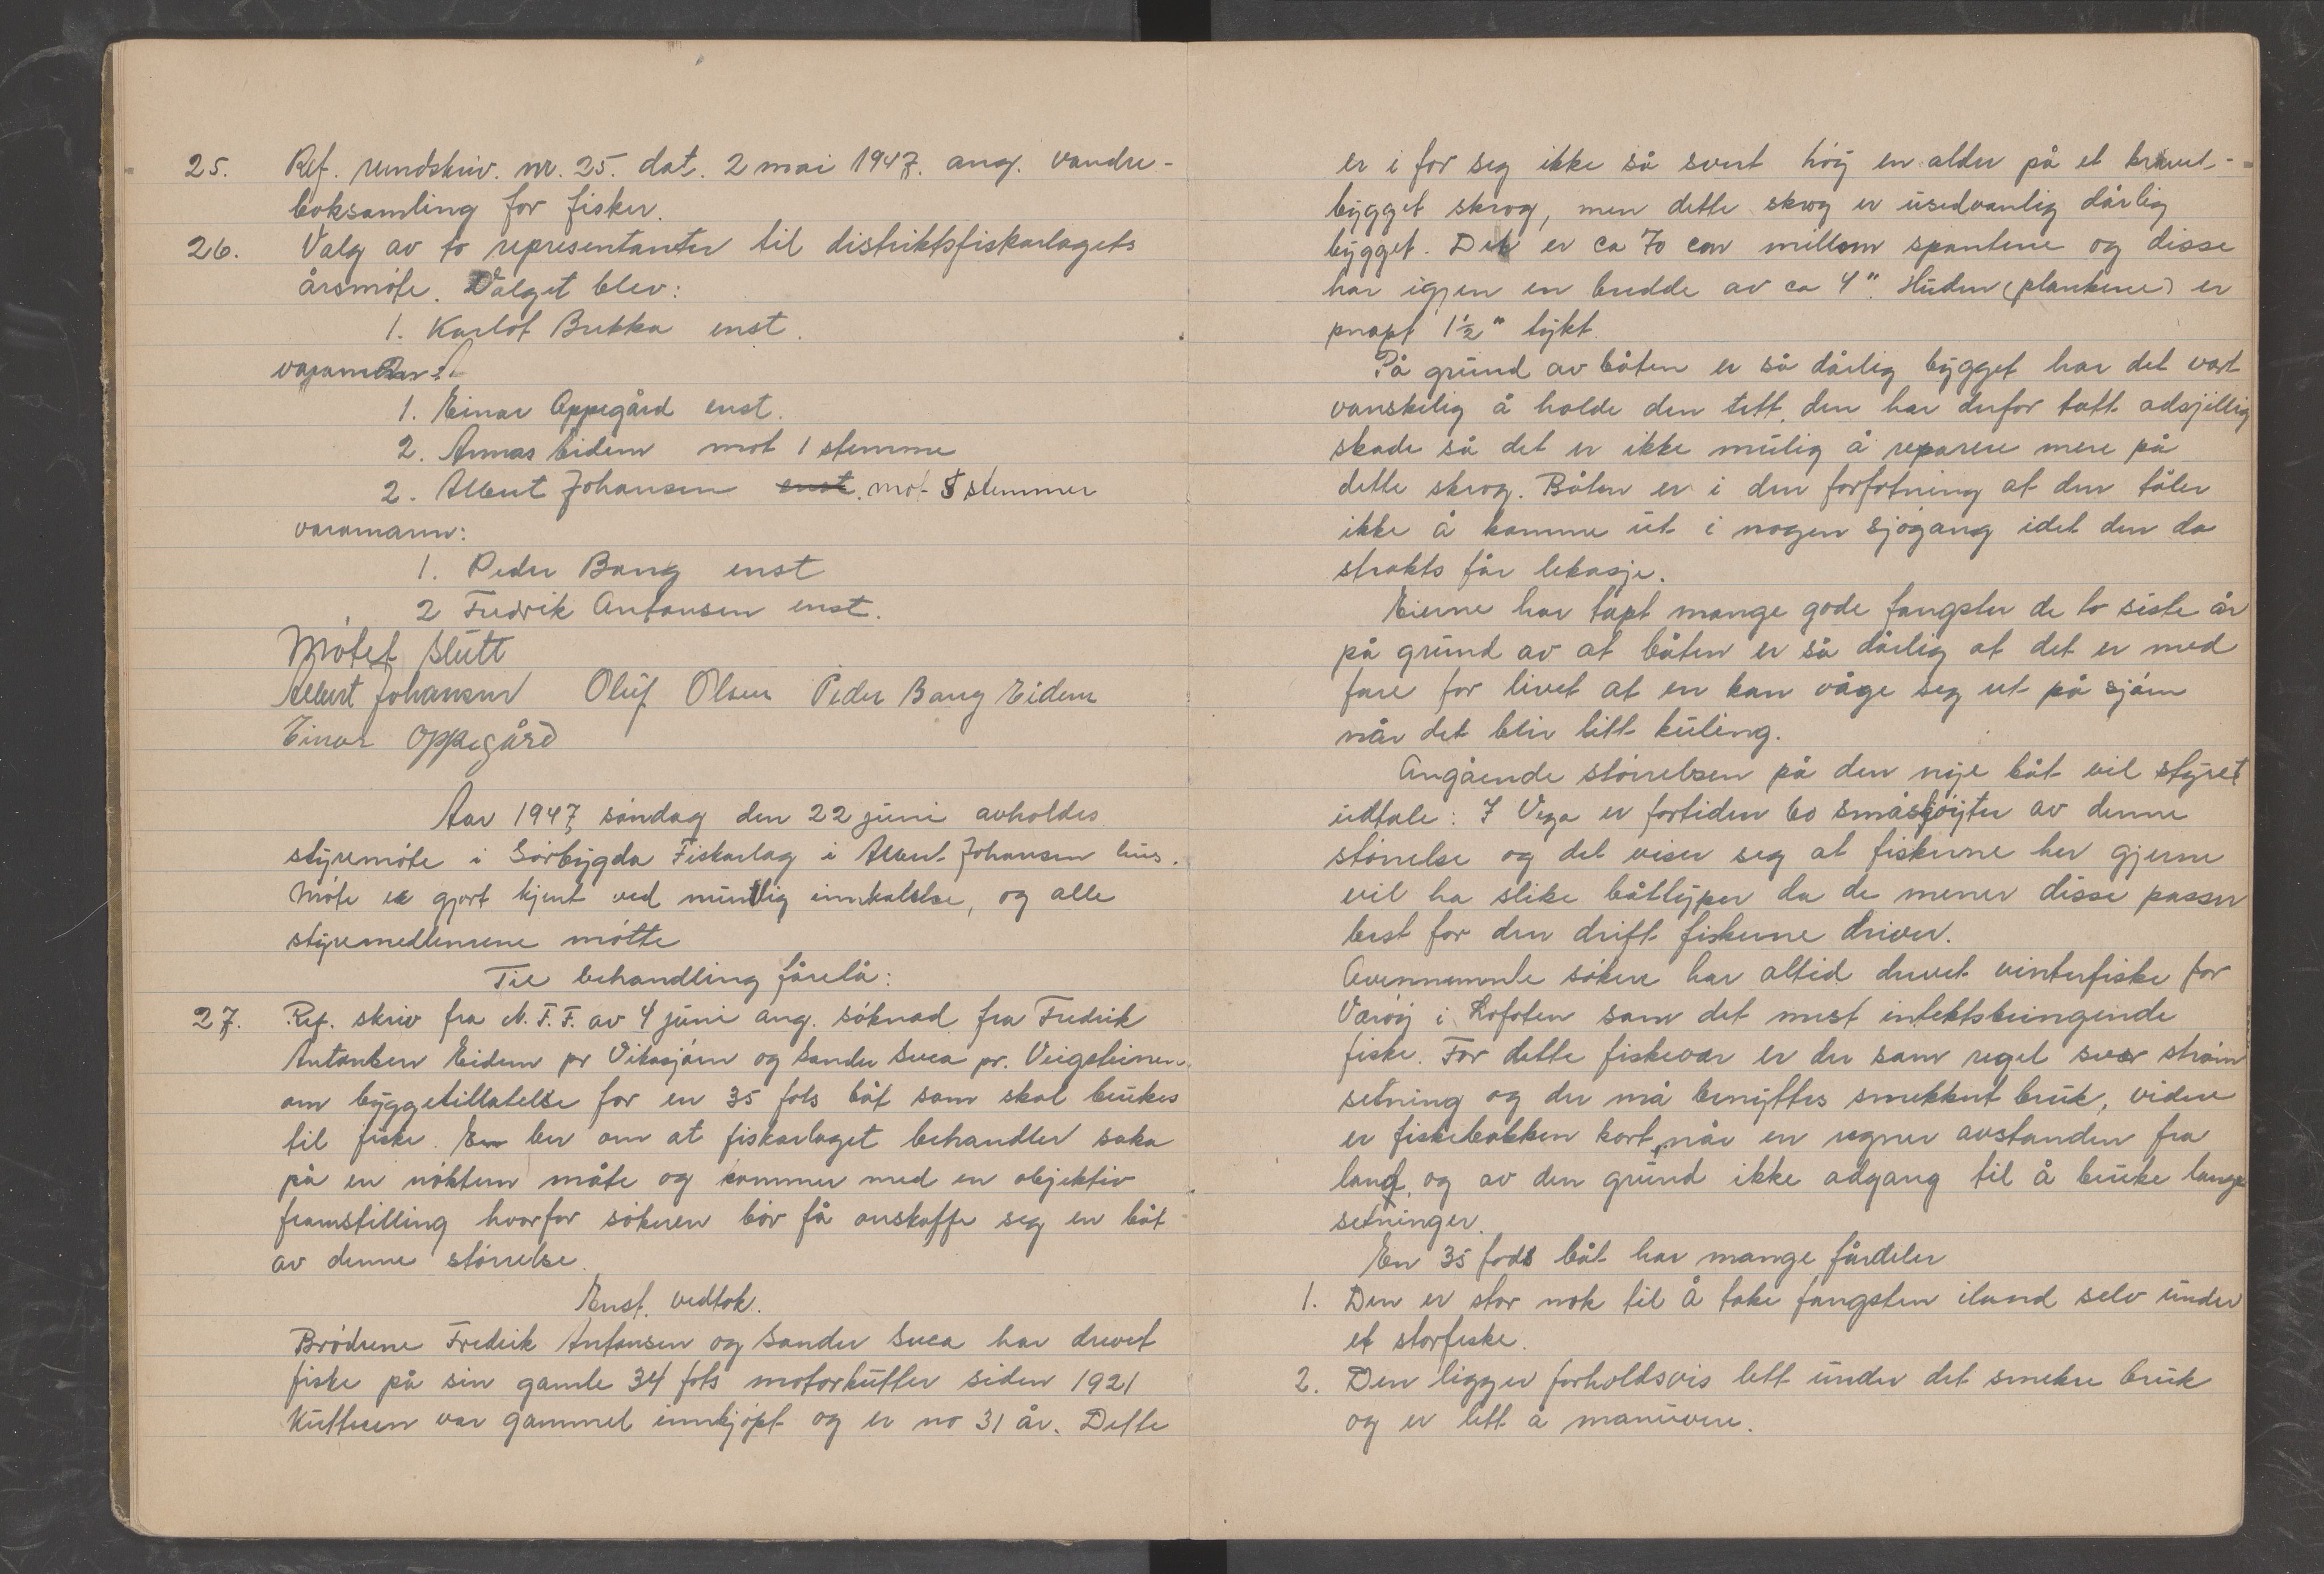 25. Ref. rundskriv. nr. 25. dat. 2 mai 1947. ang. vandre-
boksamling for fisker.
26. Valg av to representanter til distriktsfiskarlagets
årsmöte. Valget blev:
1. Karlot Brekka enst.
varamann:
1. Einar Oppegård enst.
2. Annas Eidem mot 1 stemme
2. Albert Johansen enst. mot 5 stemmer
varamann:
1. Peder Bang enst
2 Fredrik Antonsen enst.
Mötet slutt
Albert Johansen Oluf Olsen Peder Bang Eidem
Einar Oppegård
Aar 1947, söndag den 22 juni avholdes
styremöte i Sörbygda Fiskarlag i Albert Johansen hus.
Möte er gjort kjent ved muntlig innkalelse, og alle
styremedlemene mötte
Til behandling fårelå:
27. Ref. skriv fra N.F.F. av 4 juni ang. söknad fra Fredrik
Antonsen Eidem pr Vikasjöen og Sander Suca pr. Veigsteinen.
om byggetillatelse for en 35 fots båt som skal brukes
til fiske. En ber om at fiskarlaget behandler saka
på en nöktern måte og kommer med en objektiv
framstilling hvorfor sökeren bör få anskaffe seg en båt
av denne störrelse.
Enst. vedtok.
Brödrene Fredrik Antonsen og Sander Suca har drevet
fiske på sin gamle 34 fots motorkutter siden 1921
Kutteren var gammel innkjöpt og er no 31 år. Dette
er i for seg ikke så svert höy en alder på et kravel-
bygget skrog, men dette skrog er usedvanlig dårlig
bygget. Det er ca 70 cm mellom spantene og disse
har igjen en bredde av ca 4". Huden (plankene) er
knapt 1½" tykt.
På grund av båten er så dårlig bygget har det vært
vanskelig å holde den tett, den har derfor tatt adsjillig
skade så det er ikke mulig å reparere mere på
dette skrog. Båten er i den forfatning at den tåler
ikke å komme ut i nogen sjögang idet den da
strakts får lekasje.
Eierne har tapt mange gode fangster de to siste år
på grund av at båten er så dårlig at det er med
fare for livet at en kan våge seg ut på sjöen
når det blir litt kuling.
Angående störrelsen på den nye båt vil styret
udtale: I Vega er fortiden 60 småsköyter av denne
störrelse og det viser seg at fiskerne her gjerne
vil ha slike båttyper da de mener disse passer
best for den drift fiskerne driver.
Ovennemnte sökere har altid drevet vinterfiske for
Væröy i Lofoten som det mest intektsbringende
fiske. For dette fiskevær er der som regel svær ström
setning og der må benyttes smekkert bruk, videre
er fiskebakken kort, når en regner avstanden fra
land, og av den grund ikke adgang til å bruke lange
setninger.
En 35 fods båt har mange fårdeler
1. Den er stor nok til å take fangsten iland selv under
et storfiske.
2. Den ligger forholdsvis lett under det smekre bruk
og er lett å manuvere.